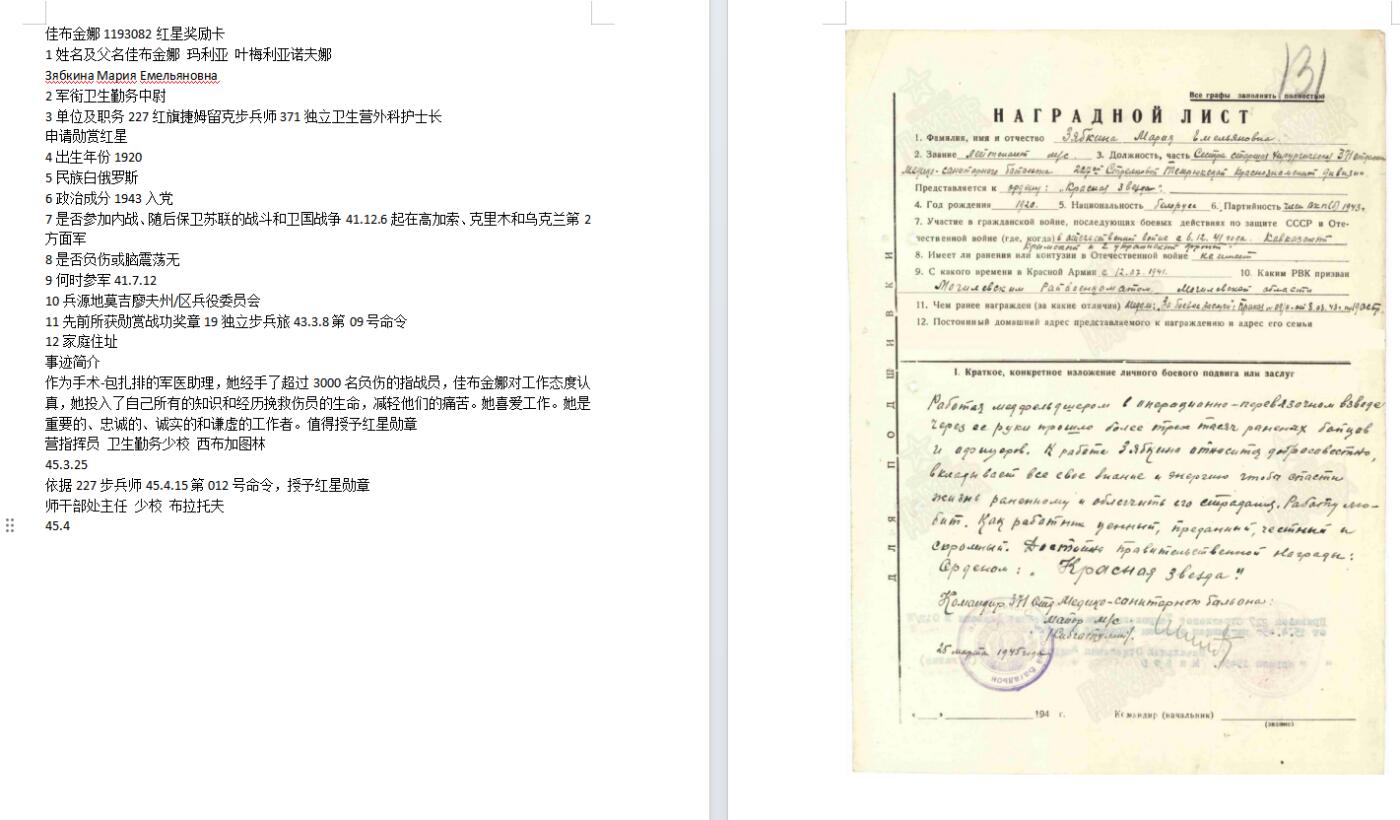 佳布金娜 1193082 红星奖励卡
1 姓名及父名佳布金娜 玛利亚 叶梅利亚诺夫娜
Зябкина Мария Емельяновна
2 军衔卫生勤务中尉
3 单位及职务 227 红旗捷姆留克步兵师 371 独立卫生营外科护士长
申请勋赏红星
4 出生年份 1920
5 民族白俄罗斯
6 政治成分 1943 入党
7 是否参加内战、随后保卫苏联的战斗和卫国战争 41.12.6 起在高加索、克里木和乌克兰第 2
方面军
8 是否负伤或脑震荡无
9 何时参军 41.7.12
10 兵源地莫吉廖夫州/区兵役委员会
11 先前所获勋赏战功奖章 19 独立步兵旅 43.3.8 第 09 号命令
12 家庭住址
事迹简介
作为手术-包扎排的军医助理，她经手了超过 3000 名负伤的指战员，佳布金娜对工作态度认
真，她投入了自己所有的知识和经历挽救伤员的生命，减轻他们的痛苦。她喜爱工作。她是
重要的、忠诚的、诚实的和谦虚的工作者。值得授予红星勋章
营指挥员 卫生勤务少校 西布加图林
45.3.25
依据 227 步兵师 45.4.15 第 012 号命令，授予红星勋章
师干部处主任 少校 布拉托夫
45.4
131
Все графы заполнить полностью
НАГРАДНОЙ ЛИСТ
1. Фамилия, имя и отчество Зябкина Мария Емельяновна.
2. Звание лейтенант м/с. 3. Должность, часть Сестра старшая хирургическая 371 отдельн
Медико-санитарного батальона 227ой Стрелковой Темрюкской Краснознаменной дивизии
Представляется к ордену: „Красная Звезда".
4. Год рождения 1920. 5. Национальность Белорус 6. Партийность член ВКП(б) 1943г.
7. Участие в гражданской войне, последующих боевых действиях по защите СССР и Оте-
чественной войне (где, когда) в отечественной войне с 6.12.41 года. Кавказский
Крымский и 2 украинский фронт.
8. Имеет ли ранения или контузии в Отечественной войне не имеет
9. С какого времени в Красной Армии с 12.07.1941. 10. Каким РВК призван
Могилевским Райвоенкоматом Могилевской области
11. Чем ранее награжден (за какие отличия) Медаль: „За боевые заслуги": Приказ № 09/н от 8.03.43г. по 19 осбр.
12. Постоянный домашний адрес представляемого к награждению и адрес его семьи
ДЛЯ ПОДШИВКИ
I. Краткое, конкретное изложение личного боевого подвига или заслуг
Работая медфельдшером в операционно-перевязочном взводе
через ее руки прошло более трех тысяч раненых бойцов
и офицеров. К работе Зябкина относится добросовестно,
вкладывает все свое знание и энергию чтобы спасти
жизнь раненному и облегчить его страдания. Работу лю-
бит. Как работник ценный, преданный, честный и
скромный. Достойна правительственной награды:
Орденом: „Красная Звезда".
Командир 371 Отд Медико-санитарного бальона:
Майор м/с
25 марта 1945 года
„___"__________194 г. Командир (начальник)
(звание)